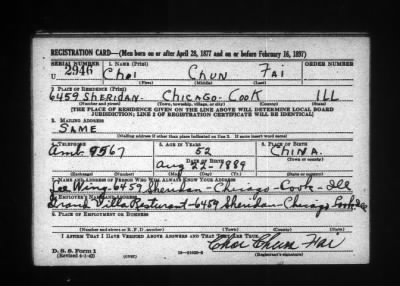 REGISTRATION CARD—(Men born on or after April 28, 1877 and on or before February 16, 1897)
SERIAL NUMBER 1. NAME (Print) ORDER NUMBER
U 2946 Choi Chun Fai
(First) (Middle) (Last)
2. PLACE OF RESIDENCE (Print)
6459 Sheridan - Chicago - Cook ILL
(Number and street) (Town, township, village, or city) (County) (State)
[THE PLACE OF RESIDENCE GIVEN ON THE LINE ABOVE WILL DETERMINE LOCAL BOARD
JURISDICTION; LINE 2 OF REGISTRATION CERTIFICATE WILL BE IDENTICAL]
3. MAILING ADDRESS
SAME
[Mailing address if other than place indicated on line 2. If same insert word same]
4. TELEPHONE 5. AGE IN YEARS 6. PLACE OF BIRTH
52
9567 DATE OF BIRTH China
(Town or county)
Aug 22 - 1889
(Exchange) (Number) (Mo.) (Day) (Yr.) (State or country)
7. NAME AND ADDRESS OF PERSON WHO WILL ALWAYS KNOW YOUR ADDRESS
Wing - 6459 Sheridan - Chicago - Cook - Ill
8. EMPLOYER'S NAME AND ADDRESS
Villa Resturant - 6459 Sheridan - Chicago Cook. Ill
9. PLACE OF EMPLOYMENT OR BUSINESS
(Number and street or R. F. D. number) (Town) (County) (State)
I AFFIRM THAT I HAVE VERIFIED ABOVE ANSWERS AND THAT THEY ARE TRUE.
Choi Chun Fai
D. S. S. Form 1
(Revised 4-1-42) (over) (Registrant's signature)